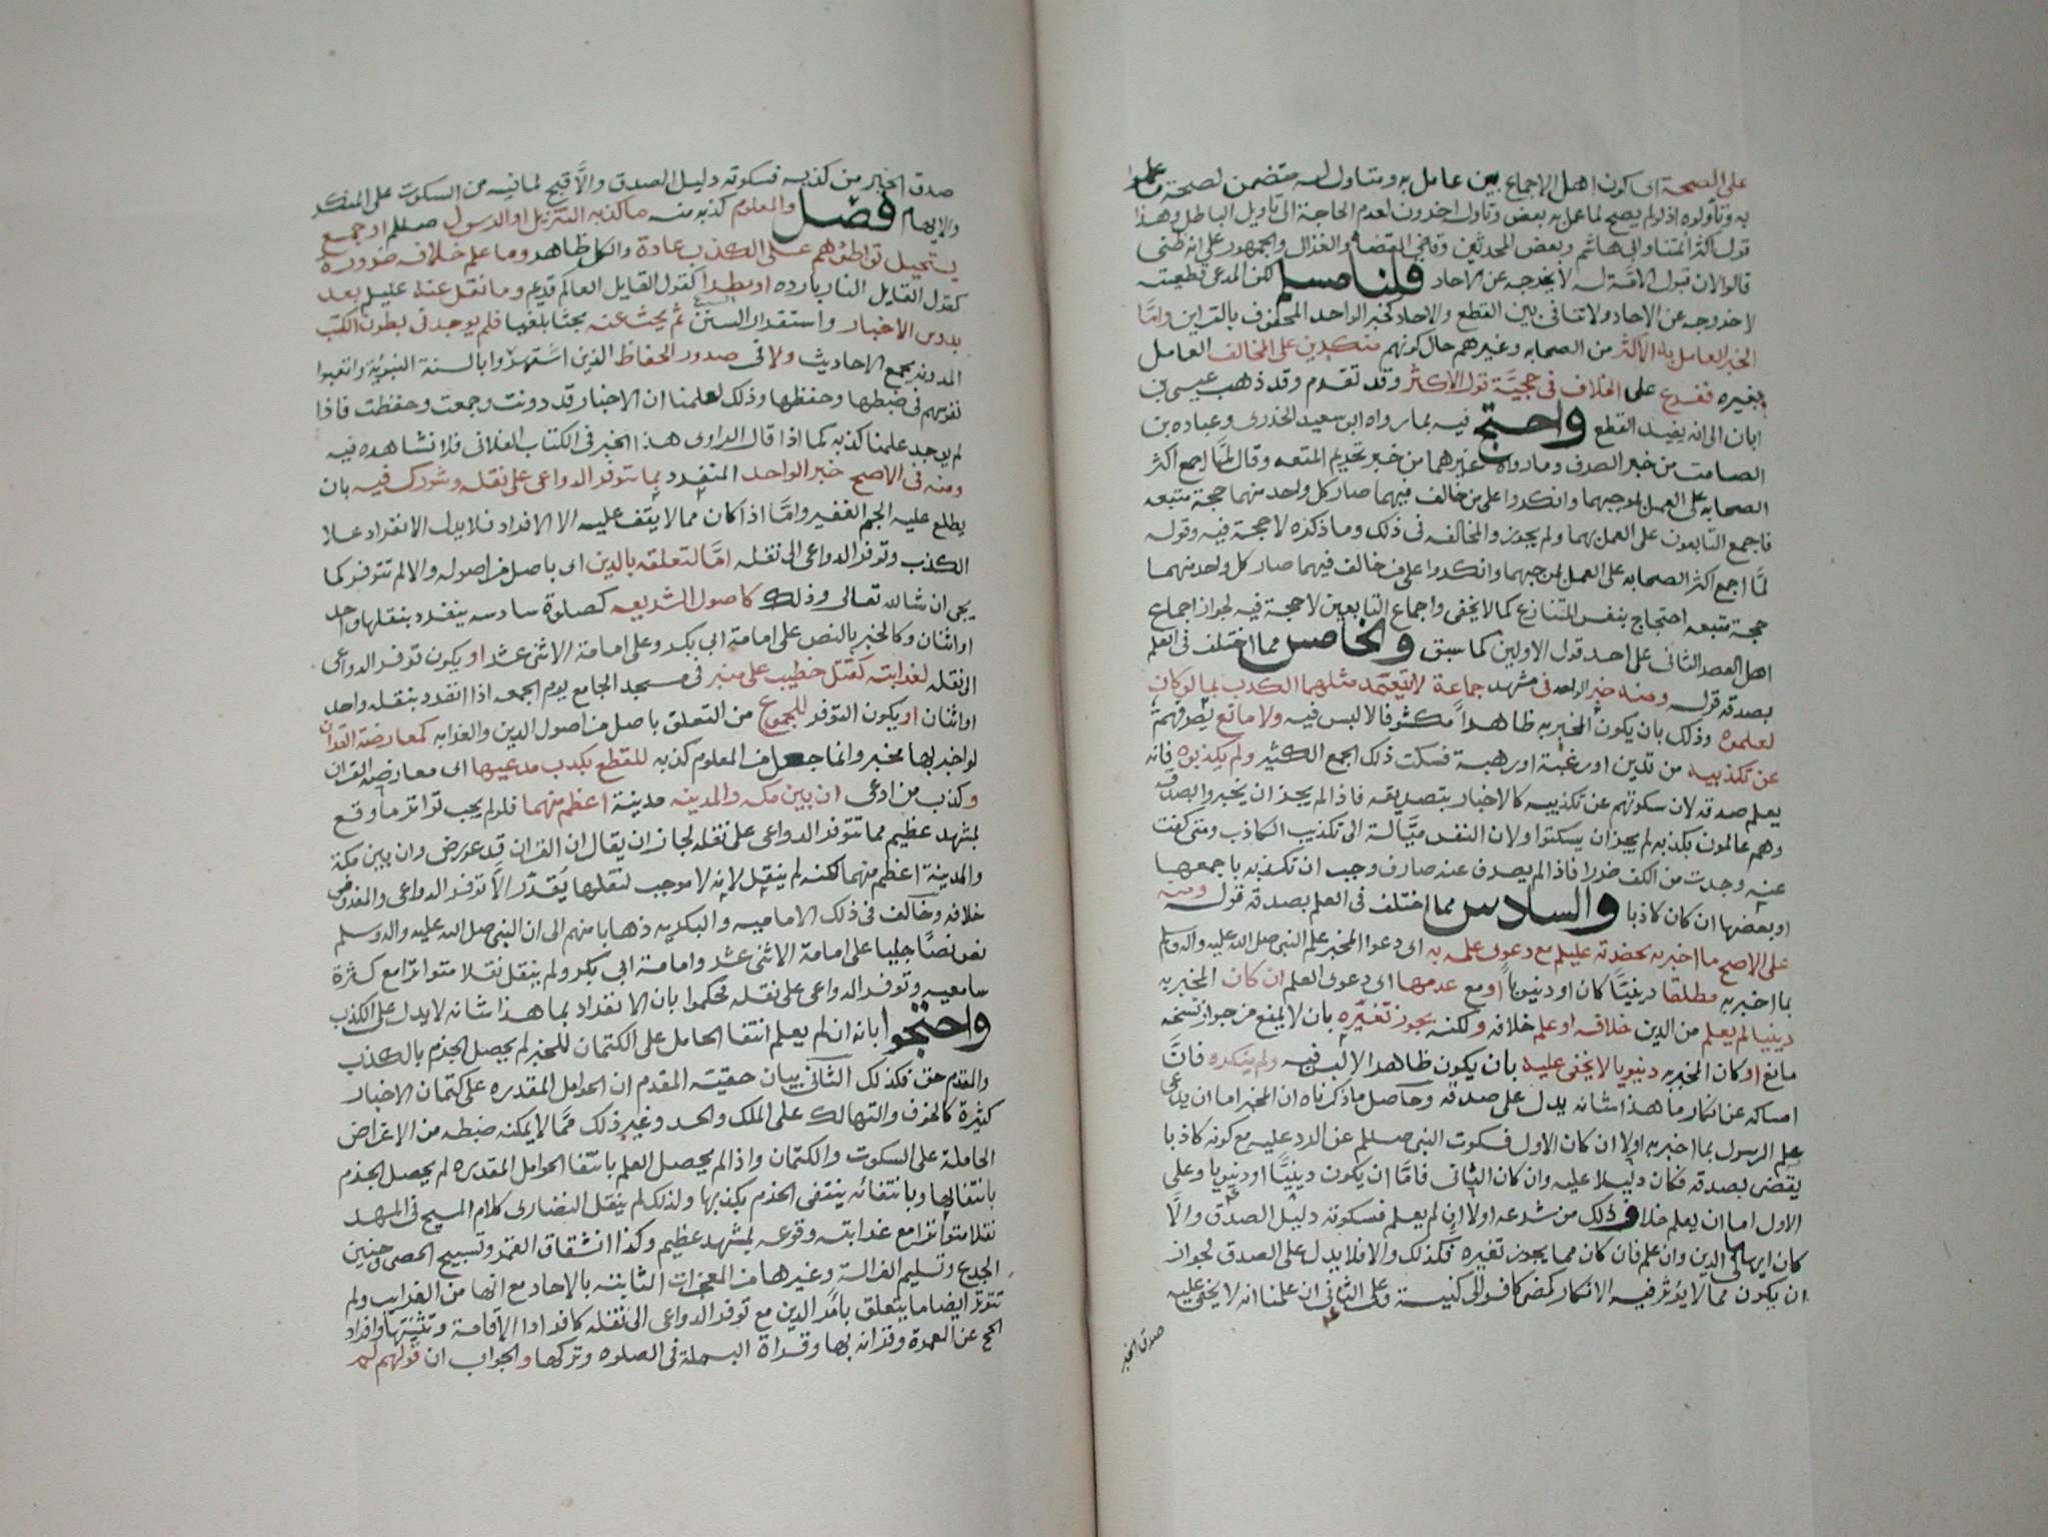 على الصحة اى كون اهل الاجماع بين عامل به ومتاول له متضمن لصحة ما عملوا
به وتأولوه اذ لو لم يصح لما عمل به بعض وتاوله اخرون لعدم الحاجة الى تاويل الباطل وهذا
قول اكثر ائمتنا وابى هاشم وبعض المحدثين وقاضى القضاه والغزالى والجمهور على انه ظنى
قالوا لان قبول الامة له لا يخرجه عن الاحاد قلنا مسلم لكن المدعى قطعيته
لا خروجه عن الاحاد ولا تنافى بين القطع والاحاد كخبر الواحد المحفوف بالقراين واما
الخبر العامل به الاكثر من الصحابه وغيرهم حال كونهم منكرين على المخالف العامل
بغيره ففرع على الخلاف فى حجية قول الاكثر وقد تقدم وقد ذهب عيسى بن
ابان الى انه يفيد القطع واحتج فيه بما رواه ابى سعيد الخدرى وعباده بن
الصامت من خبر الصرف وما رواه غيرهما من خبر تحريم المتعه وقال لما اجمع اكثر
الصحابه على العمل بموجبهما وانكروا على من خالف فيهما صار كل واحد منهما حجة متبعه
فاجمع التابعون على العمل بهما ولم يجوزوا المخالفه فى ذلك وما ذكره لا حجة فيه وقوله
لما اجمع اكثر الصحابه على العمل بموجبهما وانكروا على من خالف فيهما صار كل واحد منهما
حجة متبعه احتجاج بنفس المتنازع كما لا يخفى واجماع التابعين لا حجة فيه لجواز اجماع
اهل العصر الثانى على احد قول الاولين كما سبق والخامس مما اختلف فى العلم
بصدقه قوله ومنه خبر الواحد فى مشهد جماعة لا يتعمد مثلهما الكذب بما لو كان
لعلموه وذلك بان يكون المخبر به ظاهرا مكشوفا لا لبس فيه ولا مانع يصرفهم
عن تكذيبه من تدين او رغبة او رهبة فسكت ذلك الجمع الكثير ولم يكذبوه فانه
يعلم صدقه لان سكوتهم عن تكذيبه كالاخبار بتصديقه فاذا لم يجز ان يخبروا بصدقه
وهم عالمون بكذبه لم يجز ان يسكتوا ولان النفس ميالة الى تكذيب الكاذب ومتى كفت
عنه وجدت من الكف ضررا فاذا لم يصرف عنه صارف وجب ان تكذبه باجمعها
او بعضها ان كان كاذبا والسادس مما اختلف فى العلم بصدقه قوله ومنه
على الاصح ما اخبر به بحضرته عليلم مع دعوى علمه به اى دعوا المخبر علم النبى صلى الله عليه واله وسلم
بما اخبر به مطلقا دينيا كان او دنيويا او مع عدمها اى دعوى العلم ان كان المخبر به
دينيا لم يعلم من الدين خلافه او علم خلافه ولكنه يجوز تغيره بان لا يمنع من جواز نسخه
مانع او كان المخبر به دنيويا لا يخفى عليه بان يكون ظاهرا لا لبس فيه ولم ينكره فان
امساكه عن انكار ما هذا شانه يدل على صدقه وحاصل ما ذكرناه ان المخبر اما ان يدعى
علم الرسول بما اخبر به اولا ان كان الاول فسكوت النبى صللم عن الرد عليه مع كونه كاذبا
يقضى بصدقه فكان دليلا عليه وان كان الثانى فاما ان يكون دينيا او دنيويا وعلى
الاول اما ان يعلم خلاف ذلك من شرعه اولا ان لم يعلم فسكوته دليل الصدق والا
كان ايهاما فى الدين وان علم فان كان مما يجوز تغيره فكذلك والا فلا يدل على الصدق لجواز
ان يكون مما لا يؤثر فيه الانكار كمضى كافر الى كنيسة وعلى الثانى ان علمنا انه لا يخفى عليه
صدق الخبر
صدق الخبر من كذبه فسكوته دليل الصدق والا قبح لما فيه من السكوت على المنكر
والايهام فصل والمعلوم كذبه منه ما كذبه التنزيل او الرسول صللم او جمع
يستحيل تواطؤهم على الكذب عادة والكل ظاهر وما علم خلافه ضرورة
كقول القايل النار بارده او نظرا كقول القايل العالم قديم وما نقل عنه عليلم بعد
بدوس الاخبار واستقرار السنن ثم يحث عنه بحثا بليغا فلم يوجد فى بطون الكتب
المدونه بجمع الاحاديث ولا فى صدور الحفاظ الذين اشتهروا بالسنة النبوية واتعبوا
نفوسهم فى ضبطها وحفظها وذلك لعلمنا ان الاخبار قد دونت وجمعت وحفظت فاذا
لم يوجد علمنا كذبه كما اذا قال الراوى هذا الخبر فى الكتاب الفلانى فلا نشاهده فيه
ومنه فى الاصح خبر الواحد المنفرد بما تتوفر الدواعى على نقله وشورك فيه بان
يطلع عليه الجم الغفير واما اذا كان مما لا يقف عليه الا الافراد فلا يدل الانفراد على
الكذب وتوفر الدواعى الى نقله اما لتعلقه بالدين اى باصل من اصوله والا لم تتوفر كما
يجى ان شا الله تعالى وذلك كاصول الشريعه كصلوة سادسه ينفرد بنقلها واحد
او اثنان وكالخبر بالنص على امامة ابى بكر وعلى امامة الاثنى عشر او يكون توفر الدواعى
الى نقله لغرابته كقتل خطيب على منبر فى مسجد الجامع يوم الجمعه اذا انفرد بنقله واحد
او اثنان او يكون التوفر للمجموع من التعلق باصل من اصول الدين والغرابه كمعارضة القران
لو اخبر بها مخبر وانما جعل من المعلوم كذبه للقطع بكذب مدعيها اى معارضة القران
وكذب من ادعى ان بين مكه والمدينه مدينة اعظم منهما فلو لم يجب تواتر ما وقع
بمشهد عظيم مما تتوفر الدواعى على نقله لجاز ان يقال ان القران قد عورض وان بين مكة
والمدينة اعظم منهما لكنه لم ينقل لانه لا موجب لنقلها يقدر الا توفر الدواعى والمفروض
خلافه وخالف فى ذلك الاماميه والبكريه ذهابا منهم الى ان النبى صلى الله عليه واله وسلم
نص نصا جليا على امامة الاثنى عشر وامامة ابى بكر ولم ينقل نقلا متواترا مع كثرة
سامعيه وتوفر الدواعى على نقله فحكموا بان الانفراد بما هذا شانه لا يدل على الكذب
واحتجوا بانه ان لم يعلم انتفا الحامل على الكتمان للخبر لم يحصل الجزم بالكذب
والمقدم حق فكذلك الثانى بيان حقية المقدم ان الحوامل المقدره على كتمان الاخبار
كثيرة كالخوف والتهالك على الملك والحسد وغير ذلك مما لا يمكنه ضبطه من الاغراض
الحاملة على السكوت والكتمان واذا لم يحصل العلم بانتفا الحوامل المقدره لم يحصل الجزم
بانتفايها وبانتفائه ينتفى الجزم بكذبها ولذلك لم ينقل النصارى كلام المسيح فى المهد
نقلا متواترا مع غرابته وقوعه بمشهد عظيم وكذا انشقاق القمر وتسبيح الحصى وحنين
الجذع وتسليم الغزالة وغيرها من المعجزات الثابته بالاحاد مع انها من الغرايب ولم
تتوتر ايضا ما يتعلق بامر الدين مع توفر الدواعى الى نقله كافراد الاقامة وتثنيتها وافراد
الحج عن العمرة وقرانه بها وقراة البسملة فى الصلوه وتركها والجواب ان قولهم لم